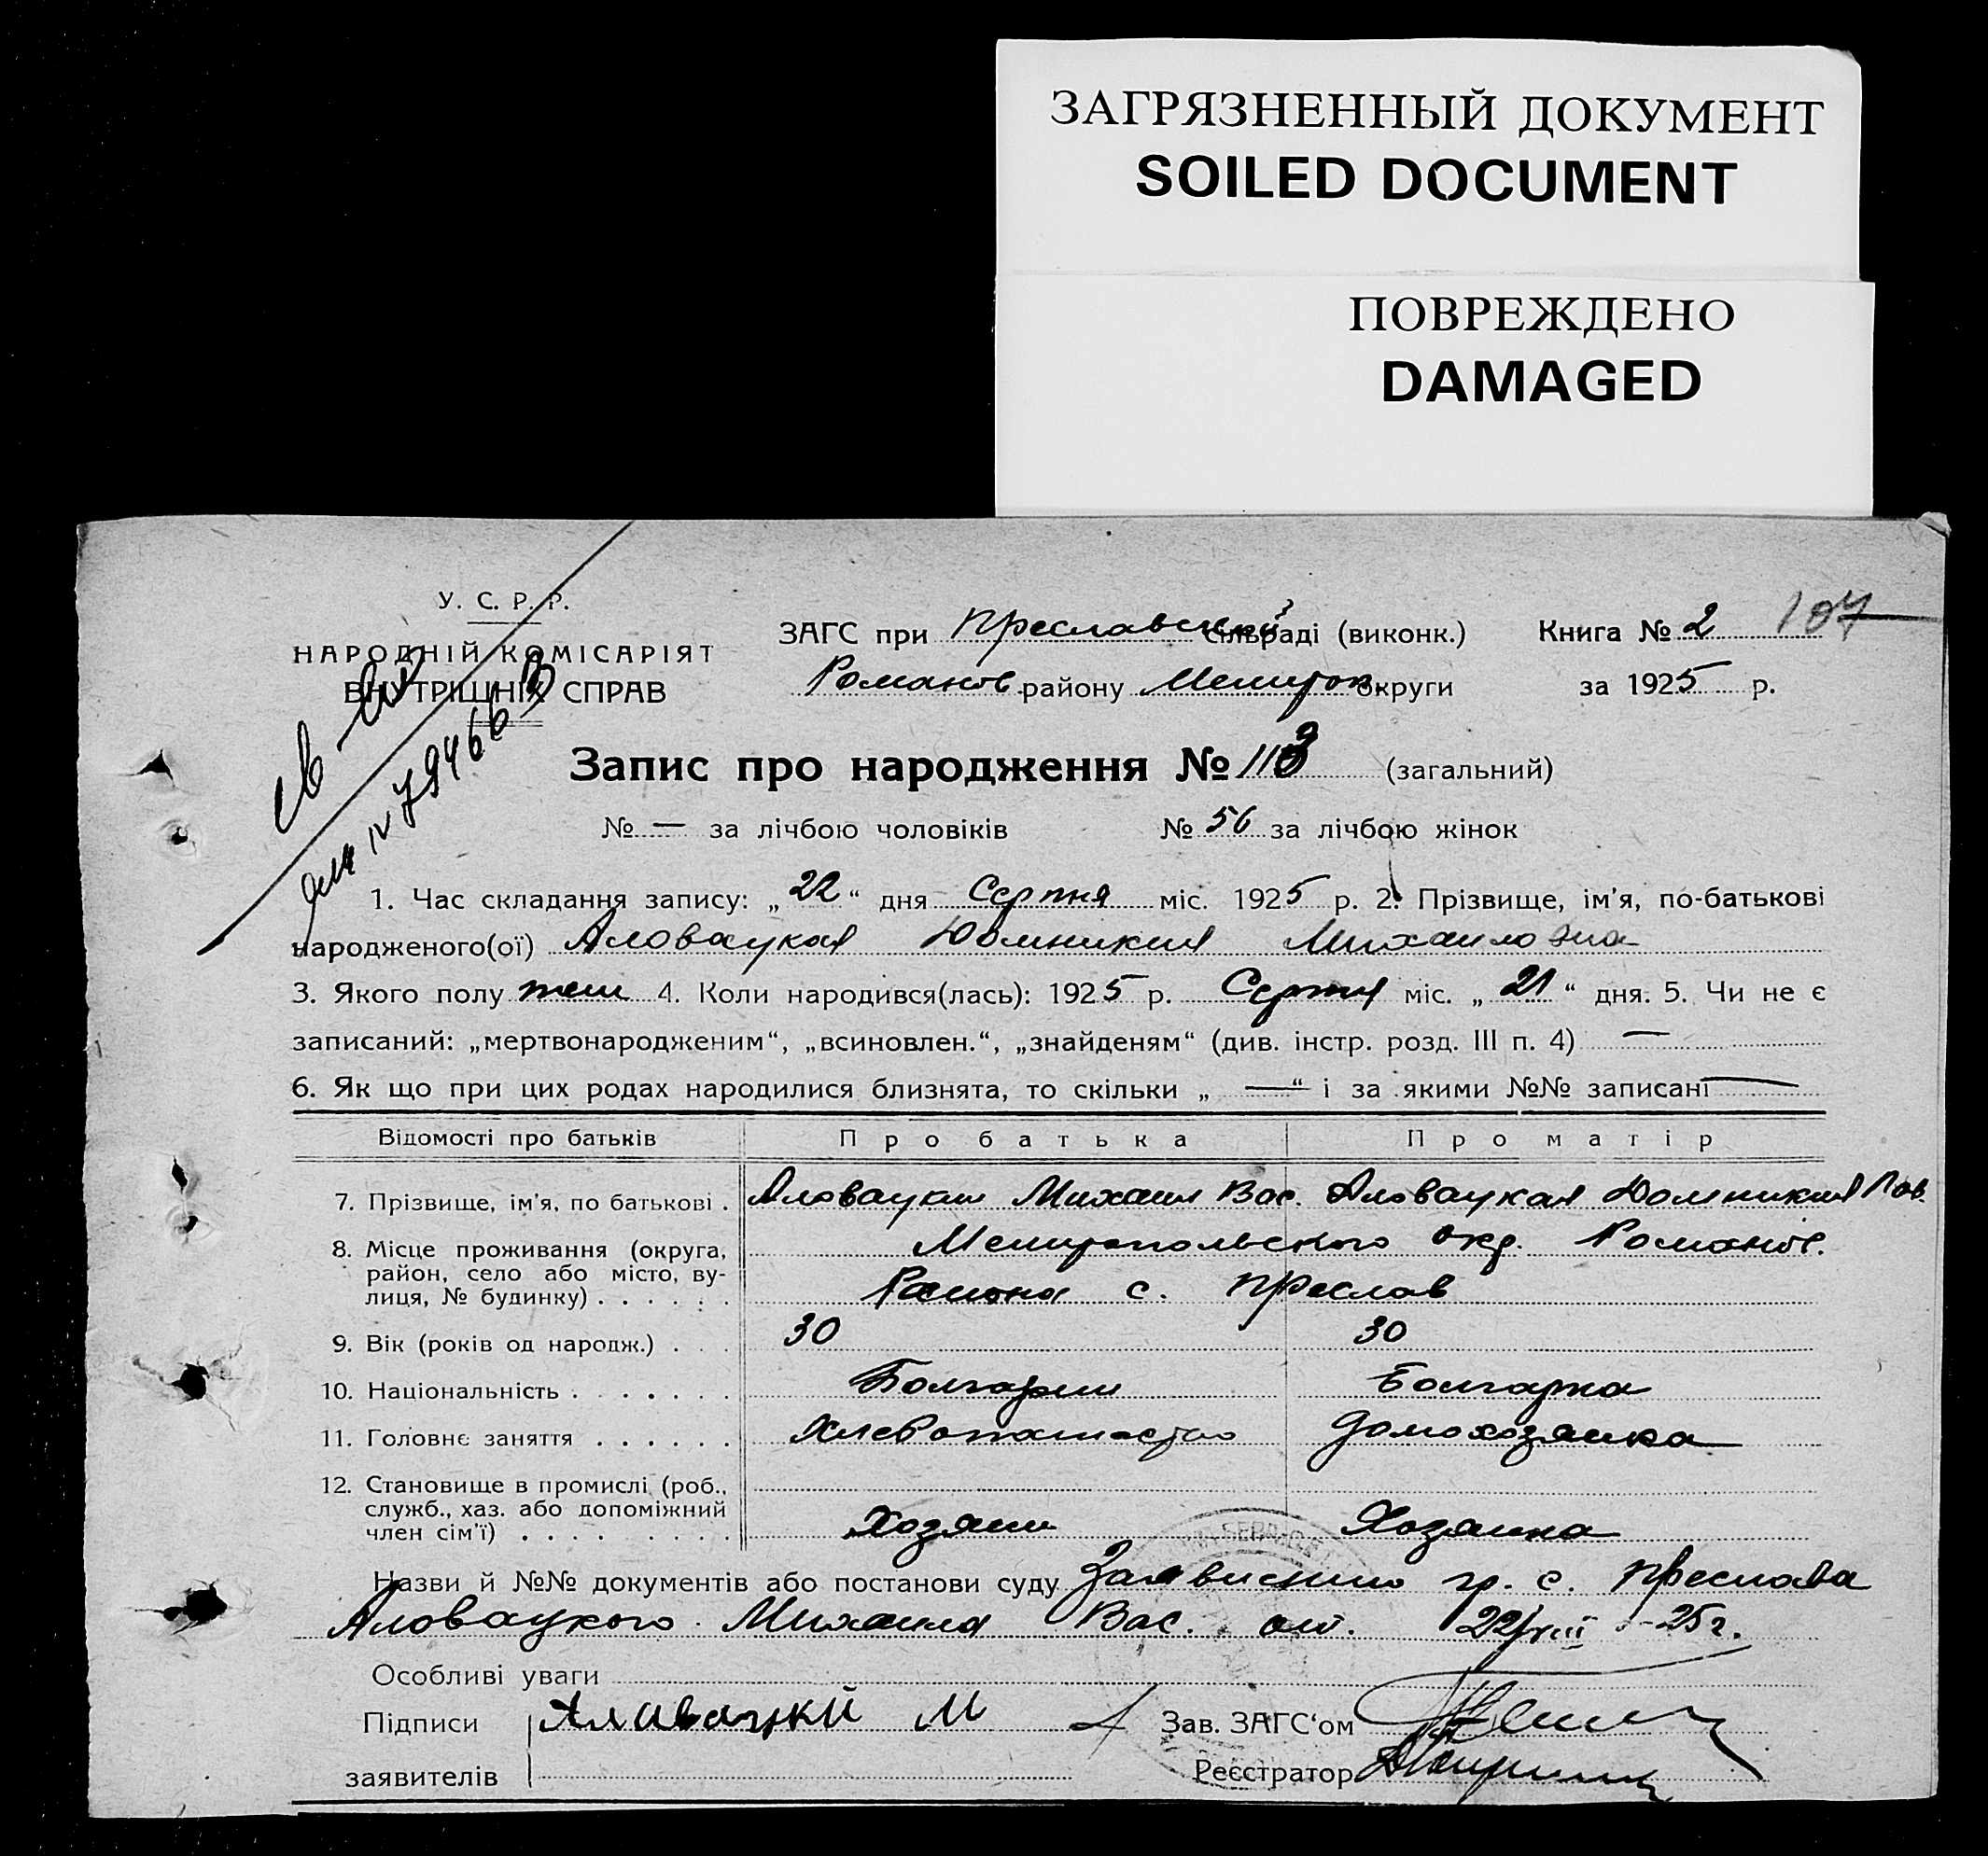 ЗАГРЯЗНЕННЫЙ ДОКУМЕНТ
SOILED DOCUMENT
ПОВРЕЖДЕНО
DAMAGED
У. С. Р. Р.
НАРОДНІЙ КОМІСАРІЯТ
ВНУТРІШНІХ СПРАВ
ЗАГС при Преславській сільраді (виконк.) Книга № 2 107
Романов. району Мелитоп. округи за 1925 р.
Запис про народження № 113 (загальний)
№ — за лічбою чоловіків № 56 за лічбою жінок
1. Час складання запису: „22“ дня Серпня міс. 1925 р. 2. Прізвище, ім'я, по-батькові
народженого(ої) Аловацкая Домникия Михаиловна
3. Якого полу жен 4. Коли народився(лась): 1925 р. Серпня міс. „21“ дня. 5. Чи не є
записаний: „мертвонародженим“, „всиновлен.“, „знайденям“ (див. інстр. розд. III п. 4) —
6. Як що при цих родах народилися близнята, то скільки „—“ і за якими №№ записані —
Відомості про батьків Про батька Про матір
7. Прізвище, ім'я, по батькові . Аловацкий Михаил Вас. Аловацкая Домникия Пав.
8. Місце проживання (округа, Мелитопольского окр. Романов.
район, село або місто, ву-
лиця, № будинку) . . . . . . Района с. Преслав
9. Вік (років од народж.) . . . 30 30
10. Національність . . . . . . . Болгарин Болгарка
11. Головнє заняття . . . . . . Хлебопашество домохозяйка
12. Становище в промислі (роб.,
служб., хаз. або допоміжний
член сім'ї) . . . . . . . . Хозяин Хозяйка
Назви й №№ документів або постанови суду Заявление гр. с. Преслава
Аловацкого Михаила Вас. от. 22/VIII -25г.
Особливі уваги
Підписи Алавацкй М Зав. ЗАГС‘ом
заявителів Реєстратор